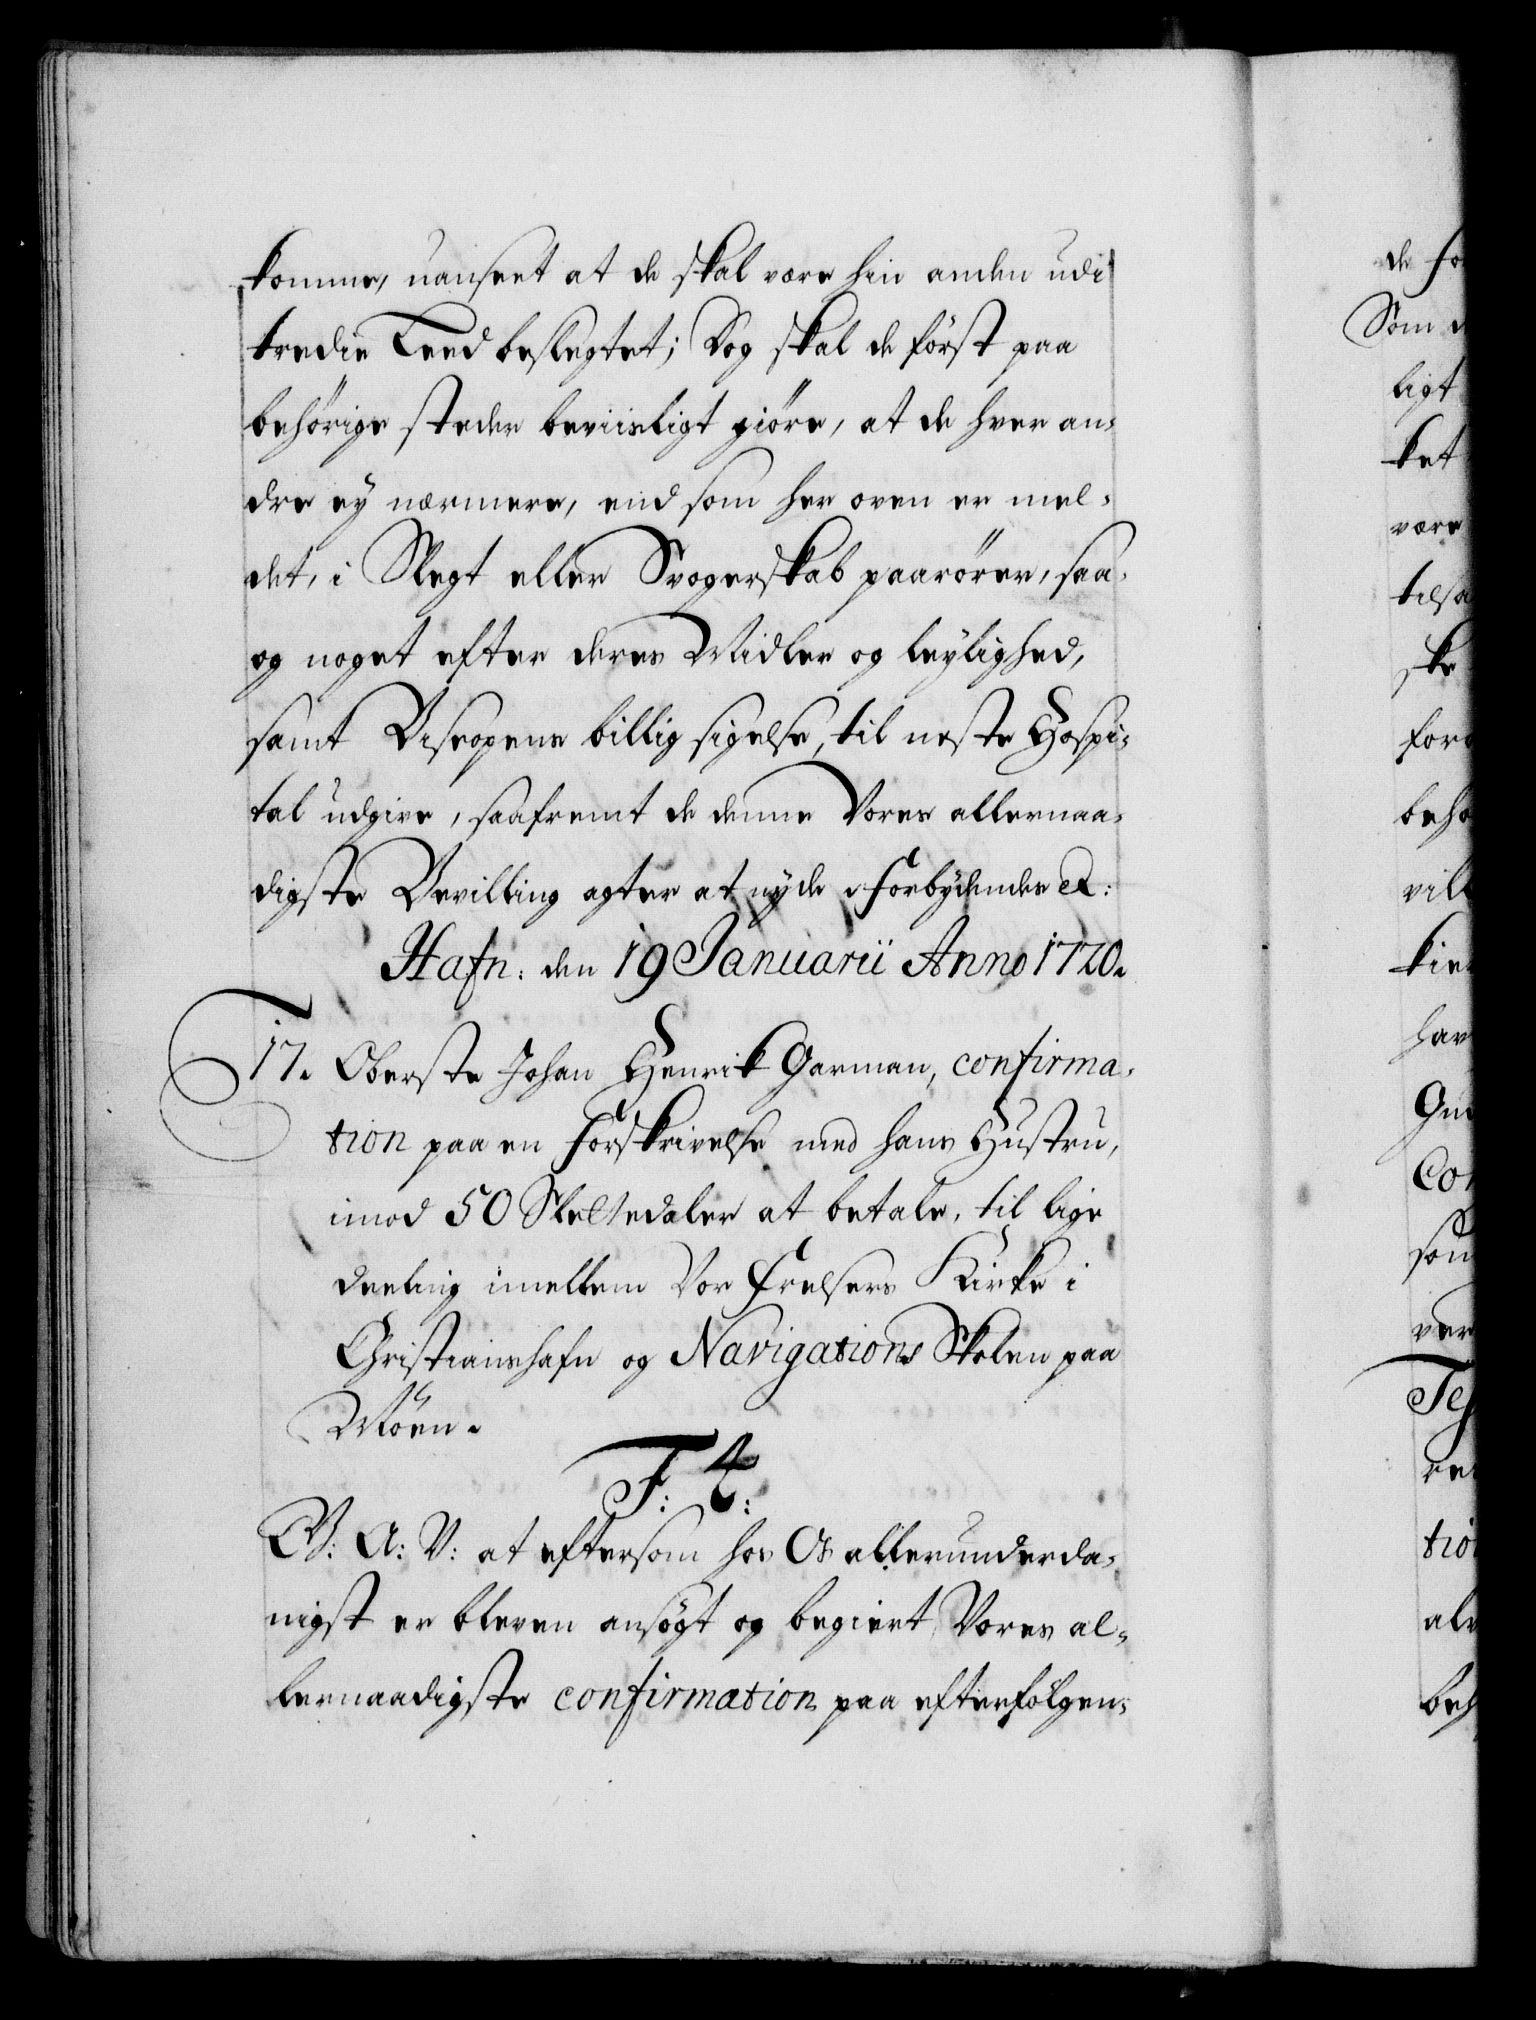 komme, uanseet at de skal være hin anden udi
tredie Leed beslegtet; Dog skal de först paa
behörige steder beviisligt giöre, at de hver an-
dre ey nærmere, end som her oven er mel-
det, i Slegt eller Svogerskab paarörer, saa-
og noget efter deres Midler og leylighed,
samt Biscopens billig sigelse, til neste Hospi-
tal udgive, saafremt de denne Vores allernaa-
digste Bevilling agter at nyde. Forbydendes etc:
Hafn: den 19 Januarii Anno 1720.
17. Oberste Johan Henrik Garman, confirma-
tion paa en Forskrivelse med hans Hustru,
imod 50 Slettedaler at betale, til lige
deeling imellem Vor Frelsers Kirke i
Christianshafn og Navigations Skolen paa
Möen.
F: 4:
G: A: V: at eftersom hos Os allerunderda-
nigst er bleven ansögt og begiert Vores al-
lernaadigste confirmation paa efterfölgen-
de
Som
ligt
ket
være
ske
kier
hav
Con
som
ver
tion